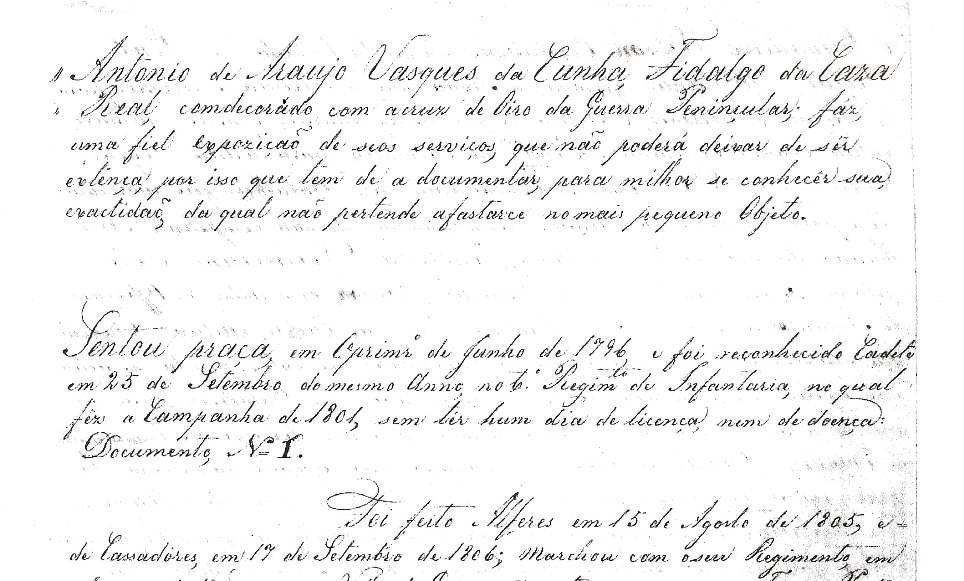 Antonio de Araujo Vasques da Cunha, Fidalgo da Caza
Real, comdecorádo com a cruz de Oiro da Guerra Peninçular; fáz,
uma fiel expozicaõ de seos serviços, que não poderá deixar de sêr
extênça por isso que tem de a documentar, para milhor se conhecêr sua,
exactidaõ, da qual não pertende afastarce no mais pequeno Objeto.
Sentou praça, em Oprimrº de Junho de 1796, e foi reconhecido Cadete
em 25 de Setembro do mesmo Anno, no 6º Regimto de Infantaria, no qual
fêz a Campanha de 1801, sem têr hum dia de licença, nem de doença:
Documento, Nº 1.
Foi feito Alferes em 15 de Agosto de 1805, e
de Cassadores, em 17 de Setembro de 1806; Marchou com o seu Regimento, em